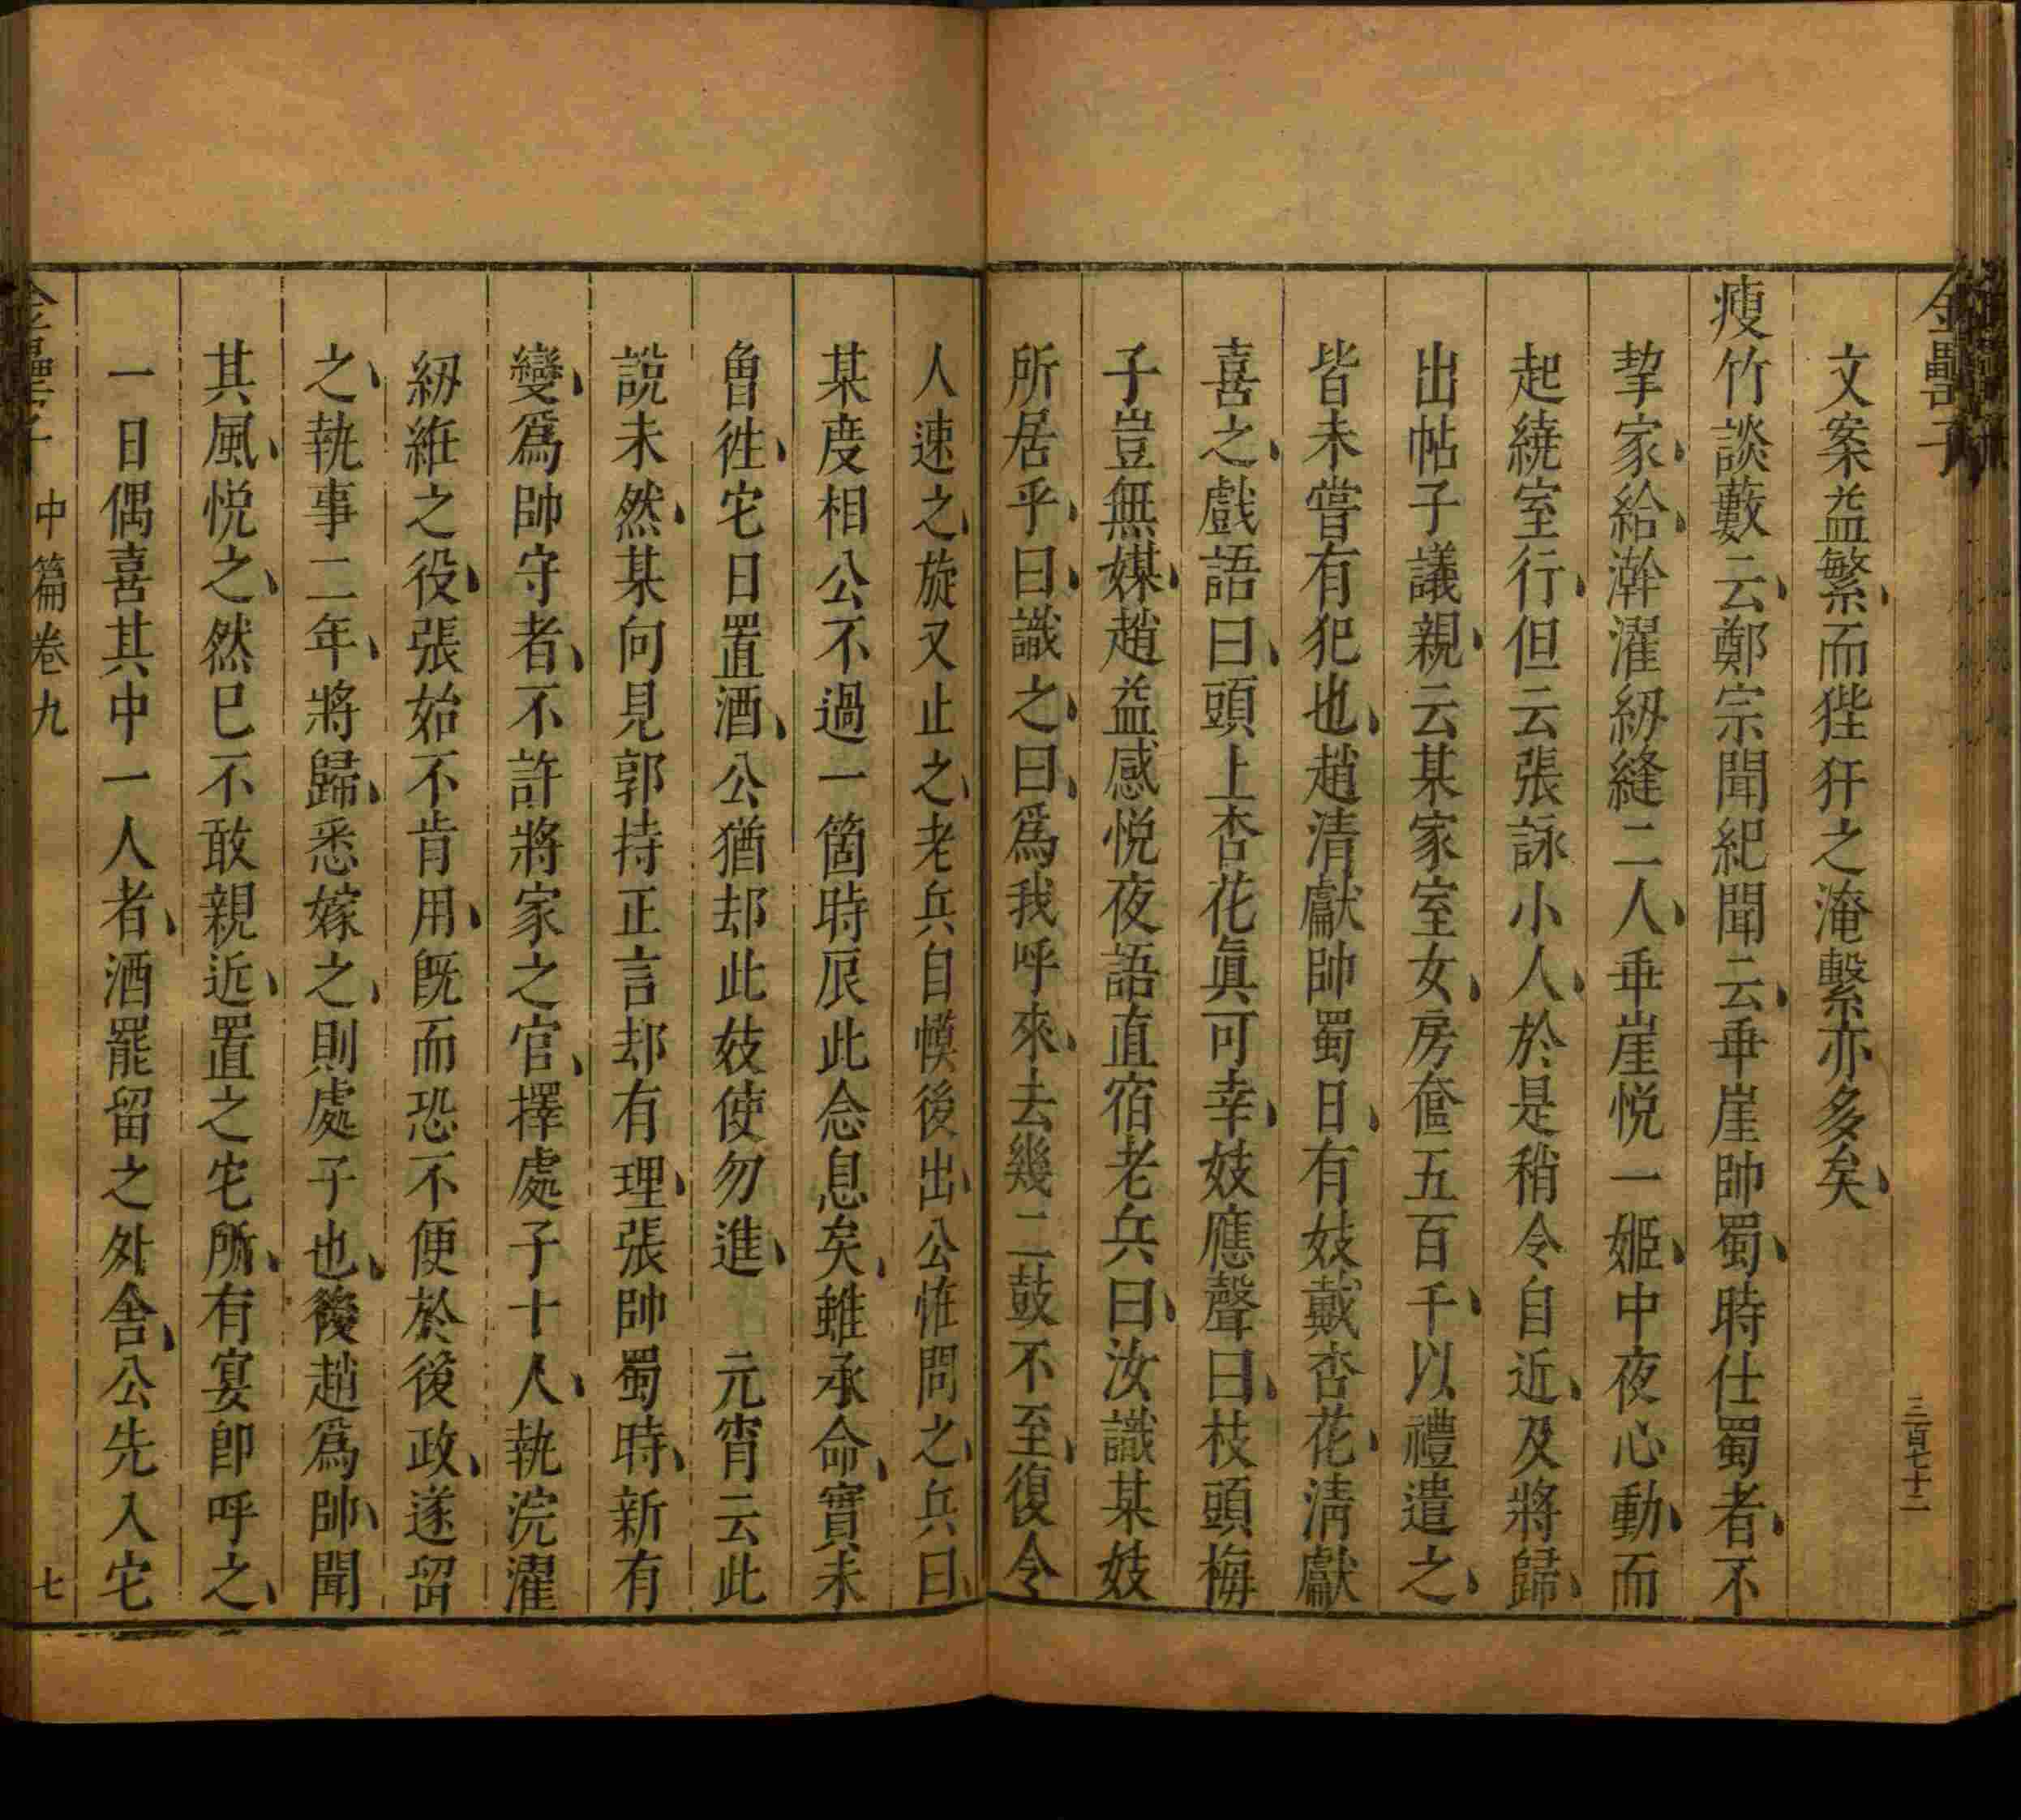 金罍子
三百七十二
文案益繁而狴犴之淹繫亦多矣
瘦竹談藪云鄭宗聞紀聞云乖崖帥蜀時仕蜀者不
挈家給澣濯紉縫二人乖崖悅一姬中夜心動而
起繞室行但云張詠小人於是稍令自近及將歸
出帖子議親云某家室女房奩五百千以禮遣之
皆未嘗有犯也趙清獻帥蜀日有妓戴杏花清獻
喜之戲語曰頭上杏花眞可幸妓應聲曰枝頭梅
子豈無媒趙益感悅夜語直宿老兵曰汝識某妓
所居乎曰識之曰爲我呼來去幾二鼓不至復令
人速之旋又止之老兵自幙後出公惟問之兵曰
某度相公不過一箇時辰此念息矣雖承命實未
曾徃宅日置酒公猶却此妓使勿進　元宵云此
說未然某向見郭持正言却有理張帥蜀時新有
變爲帥守者不許將家之官擇處子十人執浣濯
紉維之役張始不肯用旣而恐不便於後政遂留
之執事二年將歸悉嫁之則處子也後趙爲帥聞
其風悅之然已不敢親近置之宅所有宴卽呼之
一日偶喜其中一人者酒罷留之外舍公先入宅
金罍子　中篇卷九　七